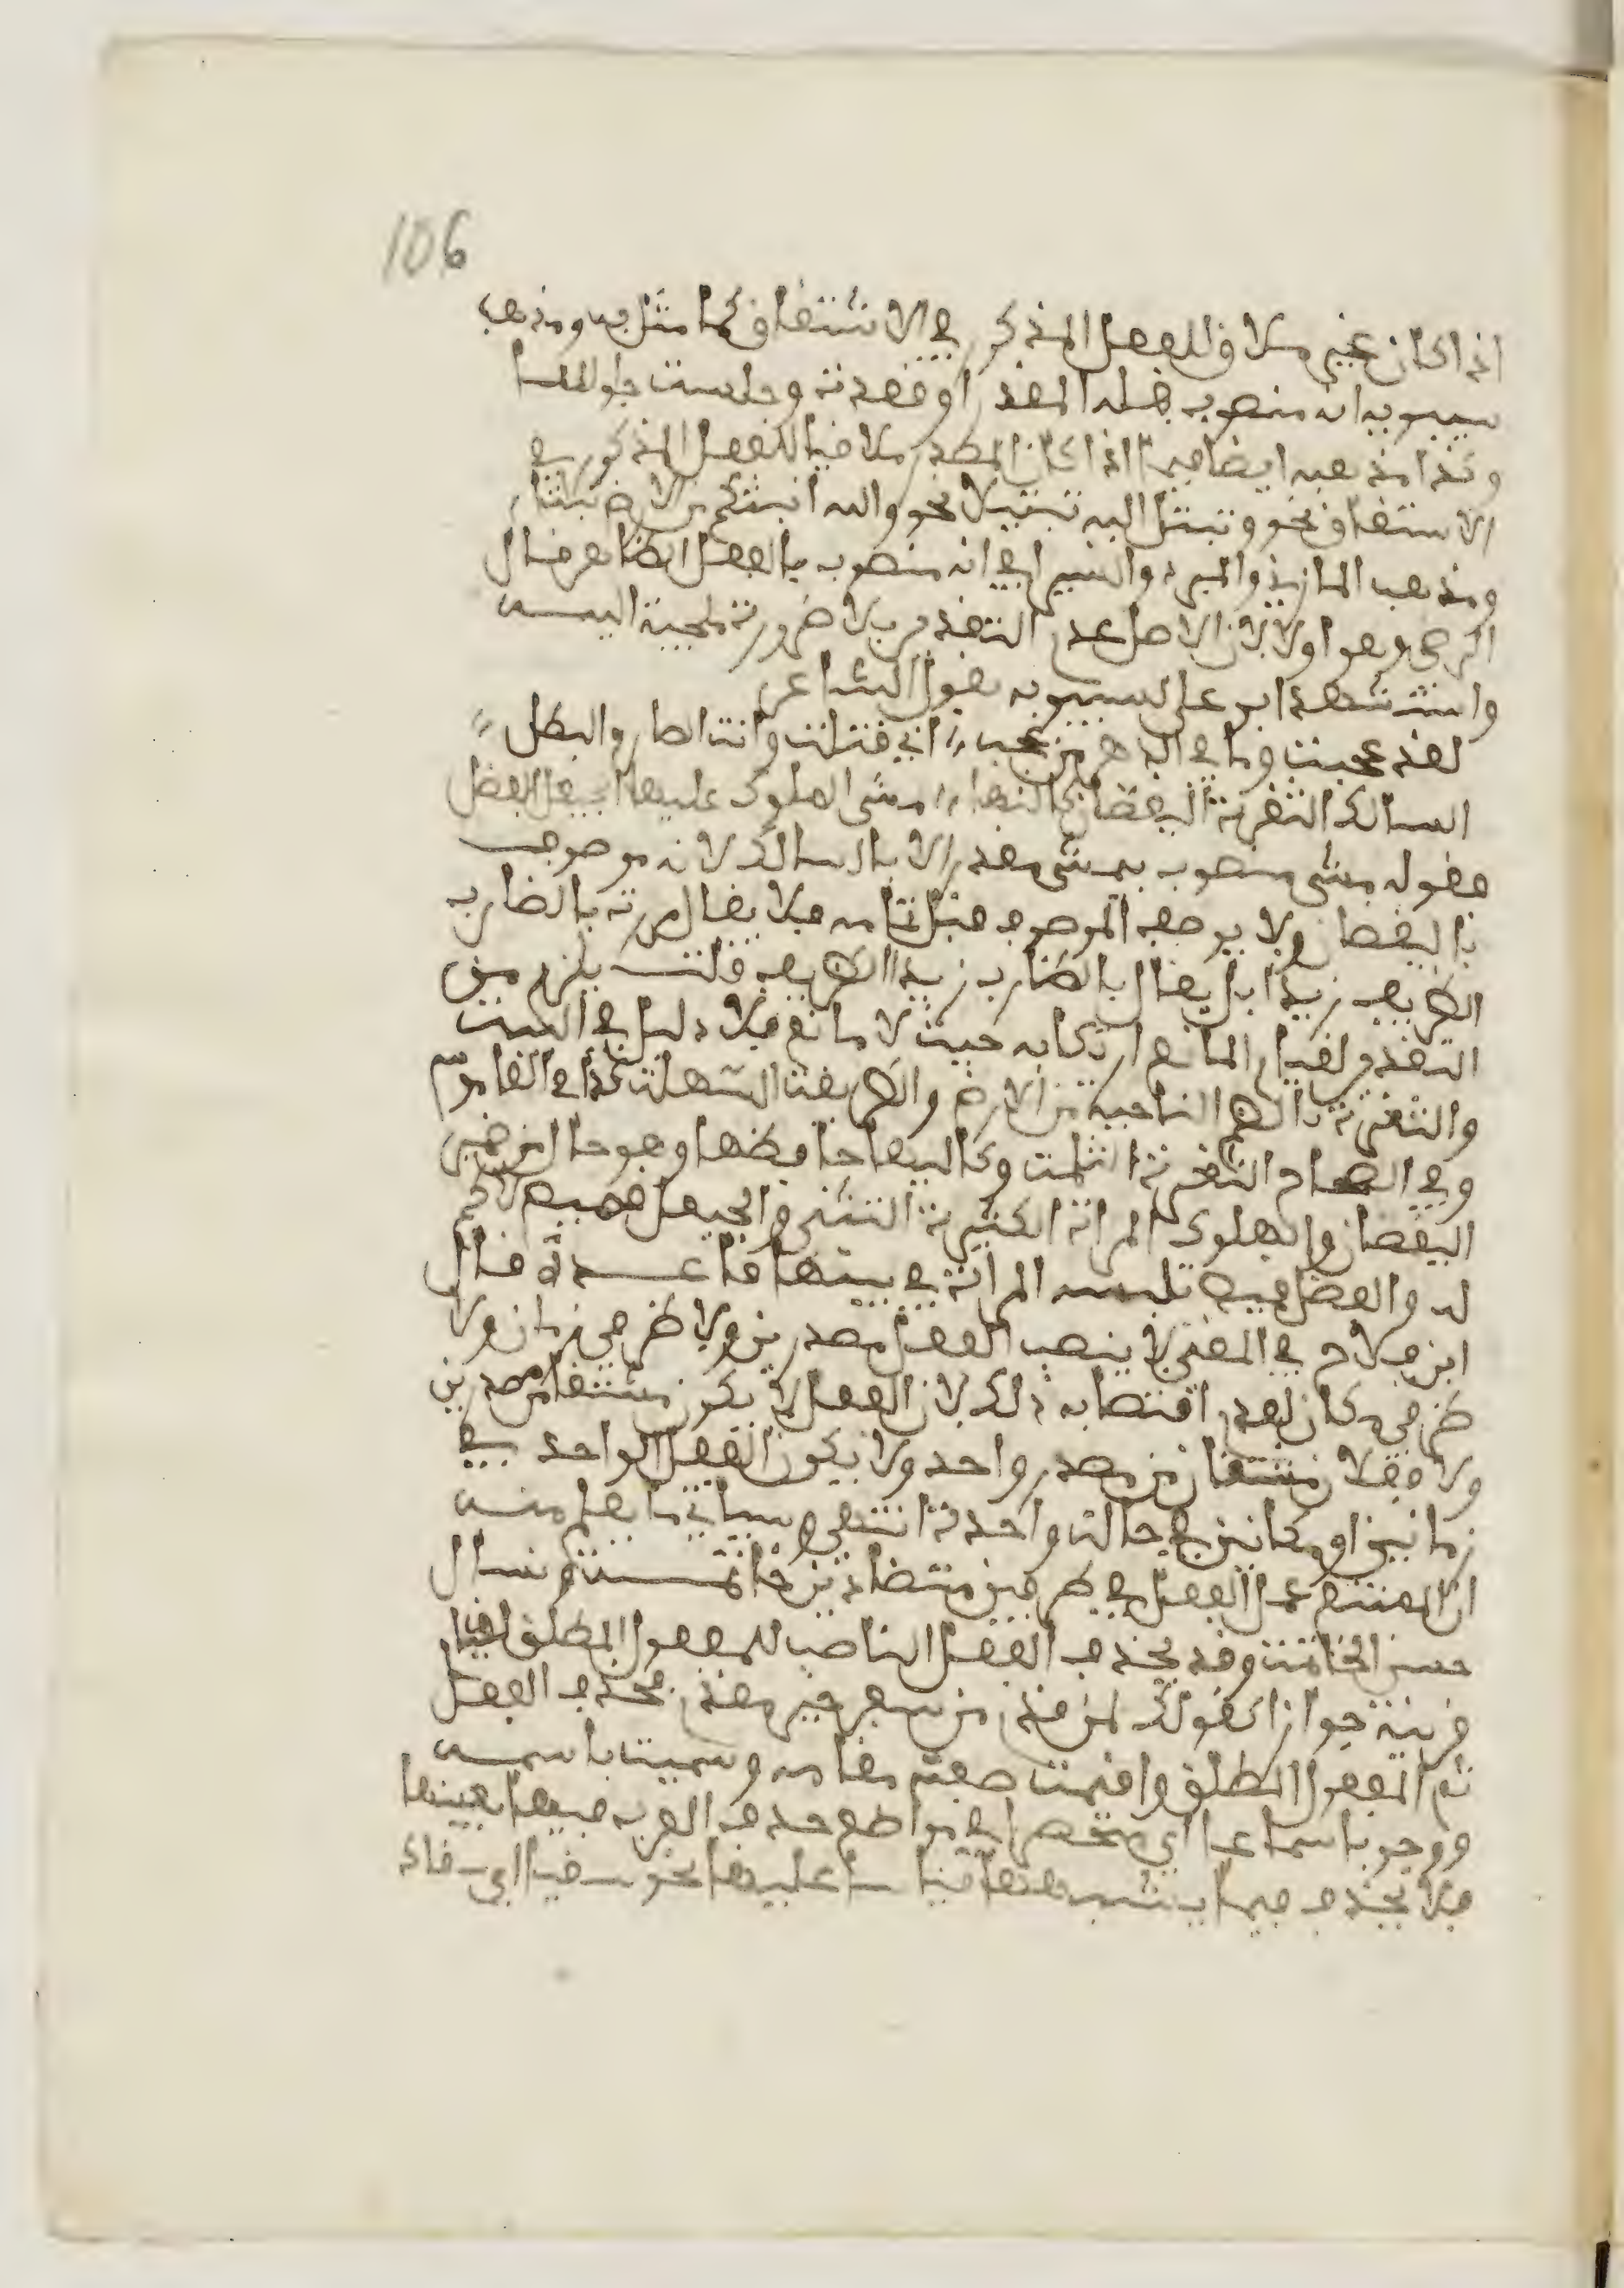 106
اذا كان غير ملاق للفعل المذكور في الاشتقاق كما مثل به ومذهب
سيبويه انه منصوب بفعله المقدر او قعدت وجلست جلوسا
وكذا مذهبه ايضا فيما اذا كان المصدر ملاقيا للفعل المذكور في
الاشتقاق نحو وتبتل اليه تبتيلا نحو والله انبتكم من الارض نباتا
ومذهب المازني والمبرد والسيرافي انه منصوب بالفعل الظاهر قال
الرضي وهو اولا لان الاصل عدم التقدير بلا ضرورة ملجئة اليه
واستشهد ابو علي لسيبويه بقول الشاعر
لقد عجبت وما في الدهر من عجب اني قتلت وانت الحازم البطل
السالك الثغرة اليقضان كالئها مشي الهلوك عليها الخيعل الفضل
فقوله مشي منصوب بيمشي مقدر لا بالسالك لانه موصوف
باليقضان ولا يوصف الموصوف قبل تمامه فلا يقال مررت بالضارب
الظريف زيدا بل يقال بالضارب زيدا الظريف قلت يلزم من
التقدير لقيام المانع ارتكابه حيث لا مانع فلا دليل في البيت
والثغرة بالضم الناحية من الارض والطريقة السهلة كذا في القاموس
وفي الصحاح الثغرة الثلمة وكاليها حافظها وهو حال من ضمير
اليقضان والهلوك المراة الكثيرة التثني والخيعل قميص لا كم
له والفضل قميص تلبسه المراة في بيتها قاعدة قال
ابن فلاح في المغني لا ينصب الفعل مصدرين ولا ظرفي زمان ولا
ظرفي مكان لعدم اقتضائه ذلك لان الفعل لا يكون مشتقا من مصدرين
ولا فعلان مشتقان من مصدر واحد ولا يكون الفعل الواحد في
زمانين او مكانين في حالة واحدة انتهى وسياتي ما يعلم منه
ان الممتنع عمل الفعل في ظرفين متضادين خاتمة نسال
حسن الخاتمة وقد يحذف الفعل الناصب للمفعول المطلق لقيام
قرينة جوازا كقولك لمن قدم من سفر خير مقدم فحذف الفعل
ثم المفعول المطلق واقيمت صفته مقامه وسميت باسمه
ووجوبا سماعا اي مقتصرا في مواضع حذف العرب فيها بعينها
فلا يحذف فيما يشبهها قياسا عليها نحو سقيا اي سقاك